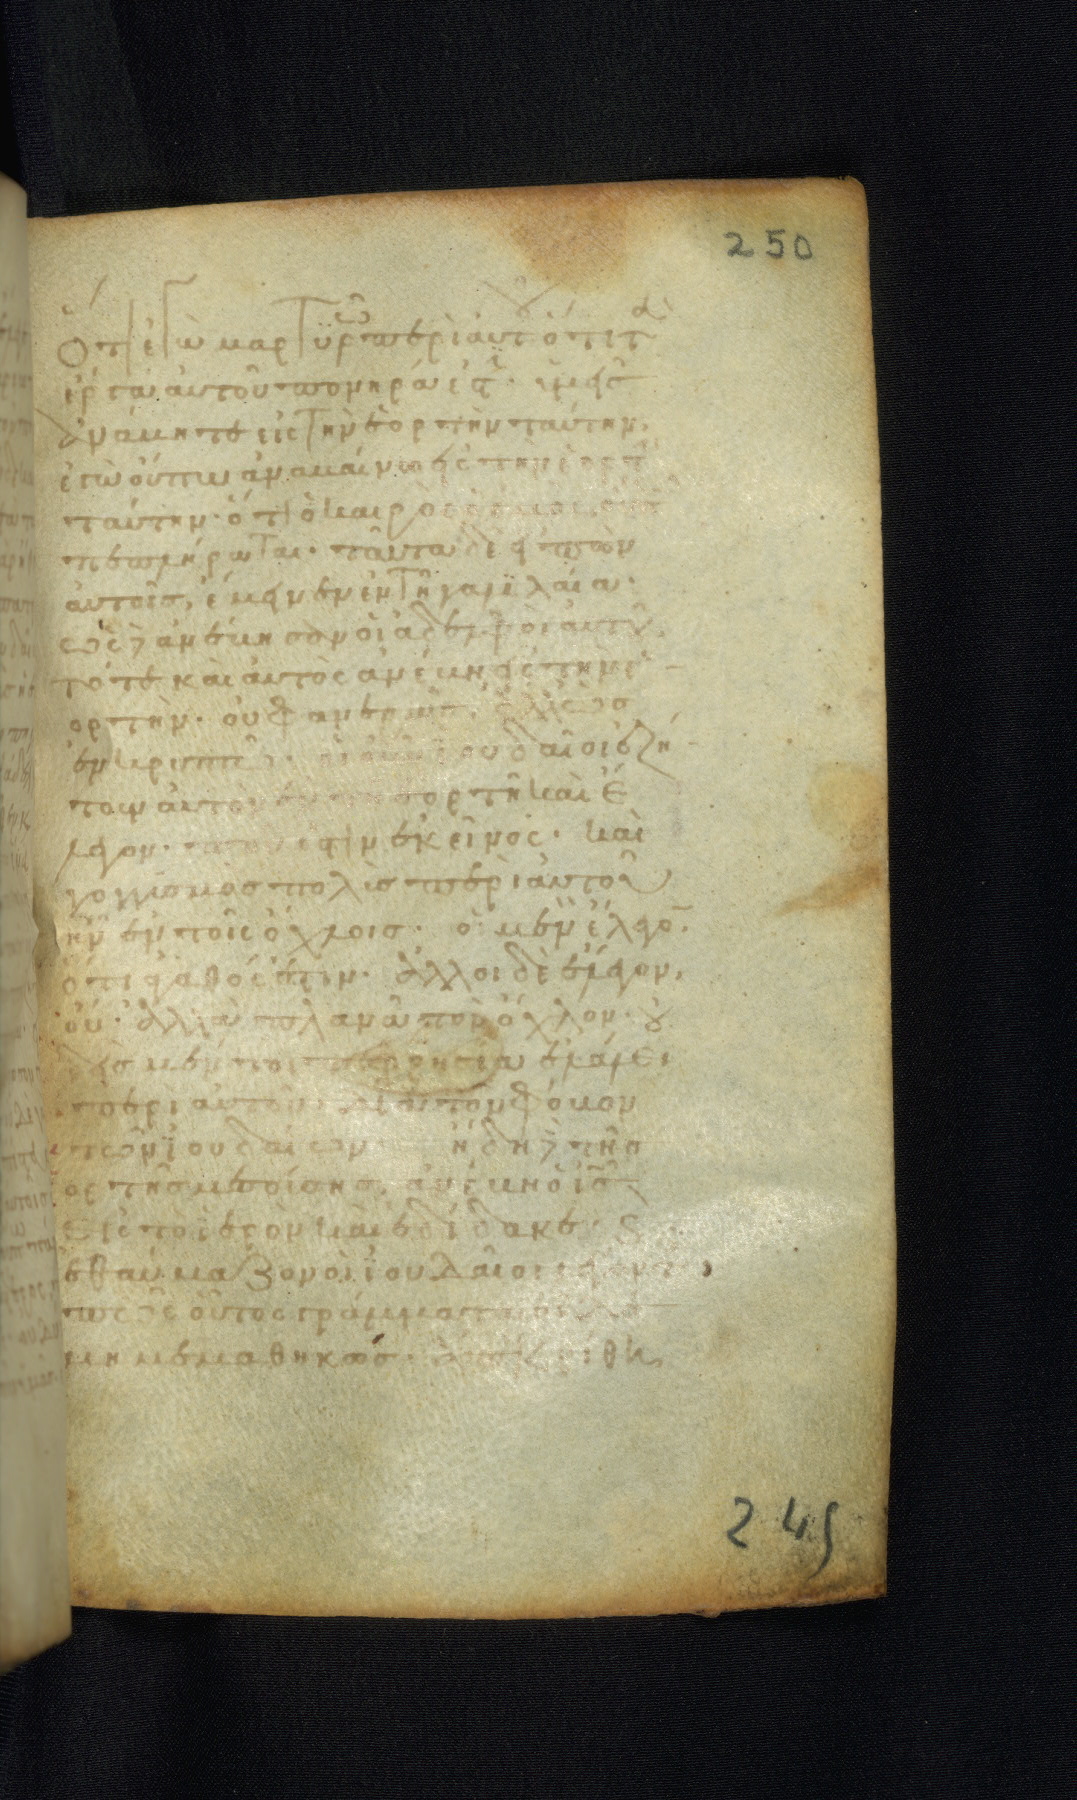 250
ὅτι ἐγὼ μαρτυρῶ περὶ αὐτοῦ ὅτι τὰ
ἔργα αὐτοῦ πονηρά ἐστιν. ὑμεῖς
ἀνάβητε εἰς τὴν ἑορτὴν ταύτην.
ἐγὼ οὔπω ἀναβαίνω εἰς τὴν ἑορτὴν
ταύτην. ὅτι ὁ καιρὸς ὁ ἐμὸς οὔπω
πεπλήρωται. ταῦτα δὲ εἰπὼν
αὐτοῖς, ἔμεινεν ἐν τῇ γαλιλαία.
ὡς δὲ ἀνέβησαν οἱ ἀδελφοὶ αὐτοῦ,
τότε καὶ αὐτὸς ἀνέβη εἰς τὴν ἑ
ορτήν. οὐ φανερῶς, ἀλλ' ὡς
ἐν κρυπτῶ. οἱ οὖν ἰουδαῖοι ἐζή
τουν αὐτὸν ἐν τῇ ἑορτῇ καὶ ἔ
λεγον. ποῦ ἐστὶν ἐκεῖνος. καὶ
γογγυσμὸς πολὺς περὶ αὐτοῦ
ἦν ἐν τοῖς ὄχλοις. οἱ μὲν ἔλεγον
ὅτι ἀγαθός ἐστιν. ἄλλοι δὲ ἔλεγον,
οὔ. ἀλλὰ πλανᾶ τὸν ὄχλον. οὐ
δεὶς μέντοι παρρησία ἐλάλει
περὶ αὐτοῦ διὰ τὸν φόβον
τῶν ἰουδαίων ἤδη δὲ τῆς ἑ
ορτῆς μεσούσης, ἀνέβη ὁ ις
εἰς τὸ ἱερὸν καὶ ἐδίδασκεν. καὶ
ἐθαύμαζον οἱ ἰουδαῖοι λέγοντες
πῶς οὗτος γράμματα οἶδεν
μὴ μεμαθηκώς. ἀπεκρίθη
245